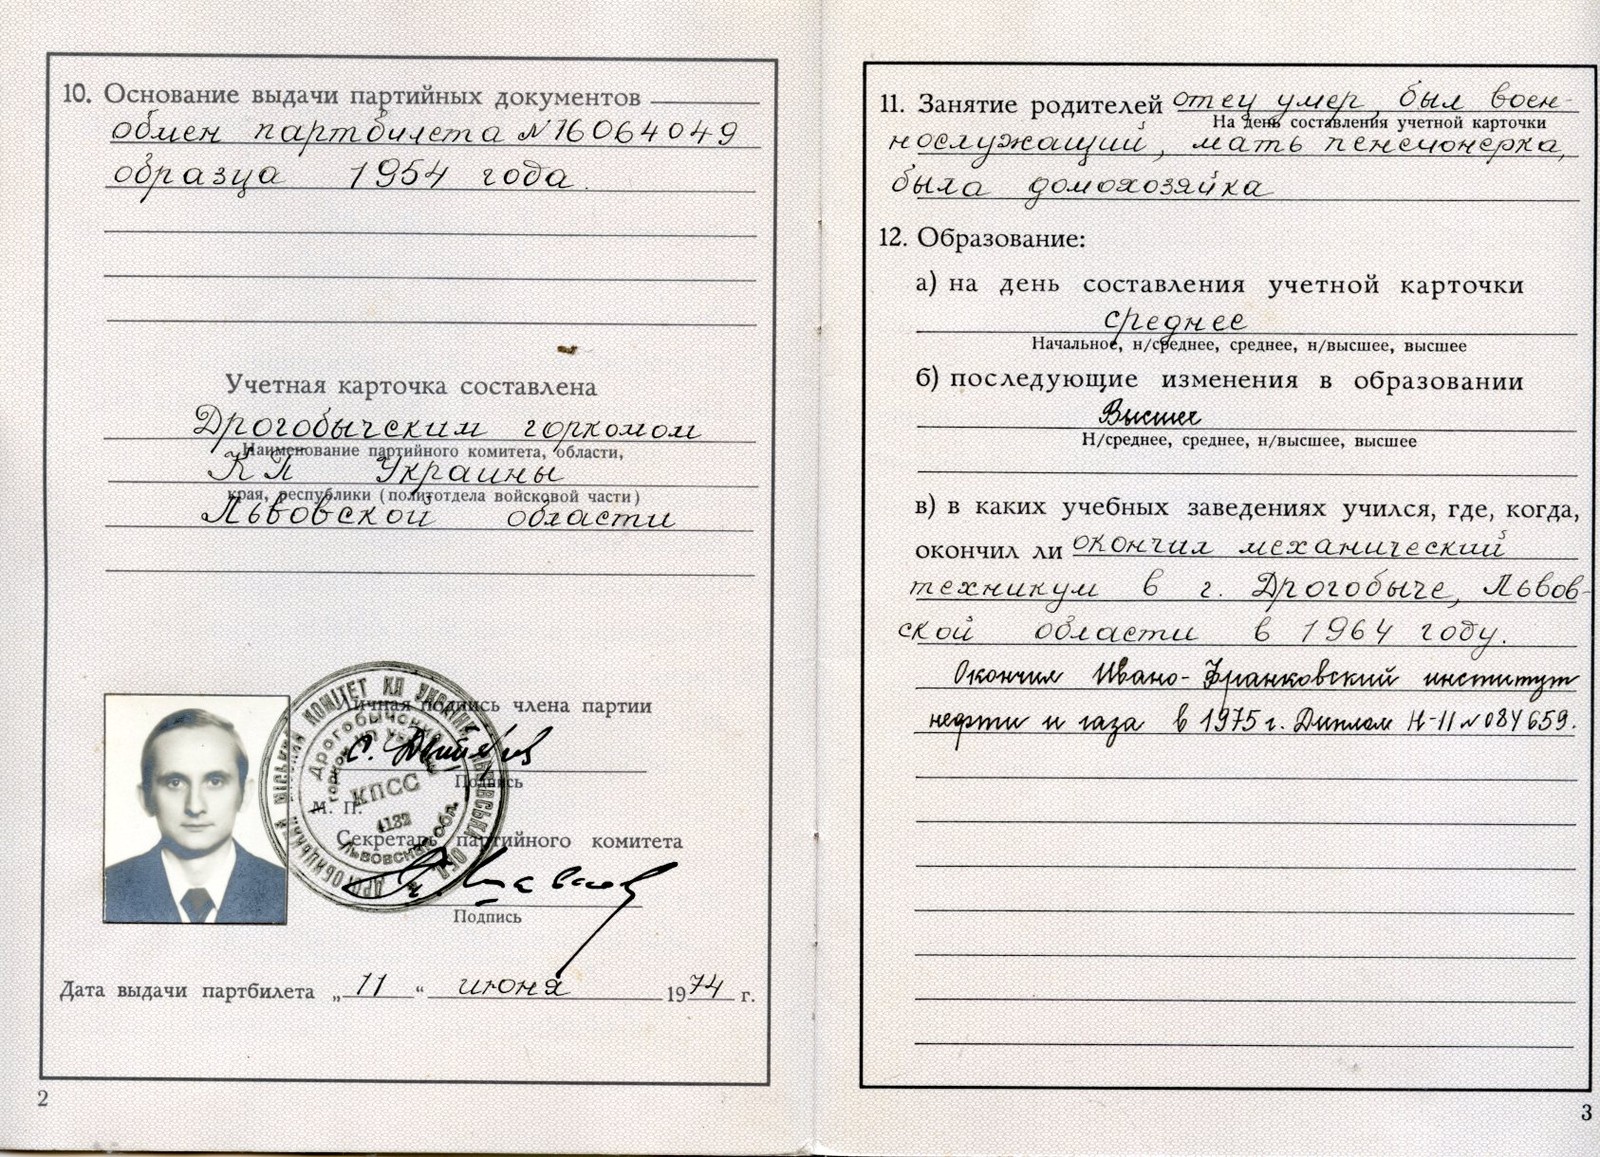 10. Основание выдачи партийных документов
обмен партбилета №16064049
образца 1954 года.
Учетная карточка составлена
Дрогобычским горкомом
Наименование партийного комитета, области,
КП Украины
края, республики (политотдела войсковой части)
Львовской области
Личная подпись члена партии
Подпись
М. П.
КПСС
4132
Львовская обл.
Секретарь партийного комитета
Подпись
Дата выдачи партбилета „11“ июня 1974 г.
2
11. Занятие родителей отец умер, был воен-
На день составления учетной карточки
нослужащий, мать пенсионерка,
была домохозяйка
12. Образование:
а) на день составления учетной карточки
среднее
Начальное, н/среднее, среднее, н/высшее, высшее
б) последующие изменения в образовании
Высшее
Н/среднее, среднее, н/высшее, высшее
в) в каких учебных заведениях учился, где, когда,
окончил ли окончил механический
техникум в г. Дрогобыче, Львов-
ской области в 1964 году.
Окончил Ивано-Франковский институт
нефти и газа в 1975 г. Диплом Н-II №084659.
3